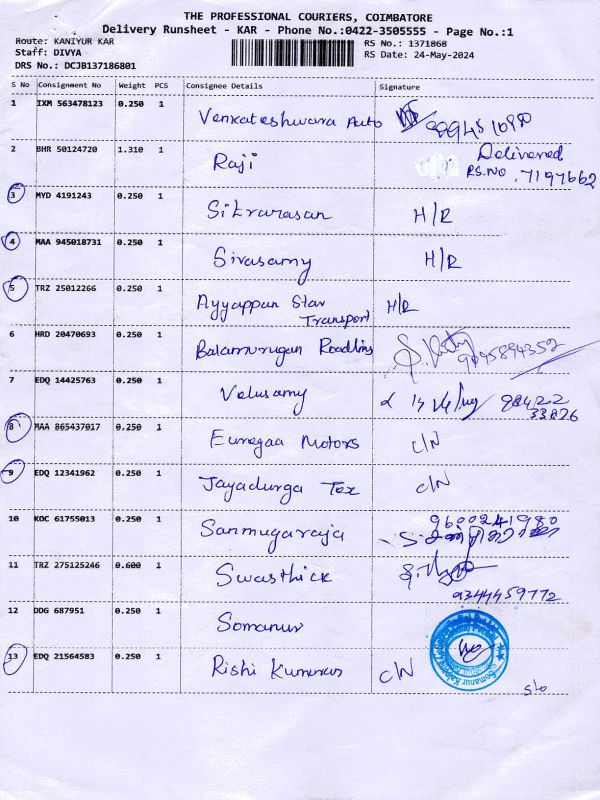 THE PROFESSIONAL COURIERS, COIMBATORE
Delivery Runsheet - KAR - Phone No.:0422-3505555 - Page No.:1
Route: KANIYUR KAR
Staff: DIVYA
DRS No.: DCJB137186801
RS No.: 1371868
RS Date: 24-May-2024
S No Consignment No Weight PCS Consignee Details Signature
1 IXM 563478123 0.250 1 Venkateshwara Auto
2 BHR 50124720 1.310 1 Raji Delivered
RS.NO .7197662
3 MYD 4191243 0.250 1 H/R
4 MAA 945018731 0.250 1 Sivasamy H/R
5 TRZ 25012266 0.250 1 Ayyappan Star H/R
Transport
6 HRD 20470693 0.250 1 Balamurugan 9095894352
7 EDQ 14425763 0.250 1 Velusamy 98422
33826
8 MAA 865437017 0.250 1 Motors C/N
9 EDQ 12341962 0.250 1 Jayadurga Tex C/N
10 KOC 61755013 0.250 1 Sanmugaraja 9600241980
11 TRZ 275125246 0.600 1 Swasthick
9344459772
12 DDG 687951 0.250 1 Somanur
13 EDQ 21564583 0.250 1 Rishi C/N